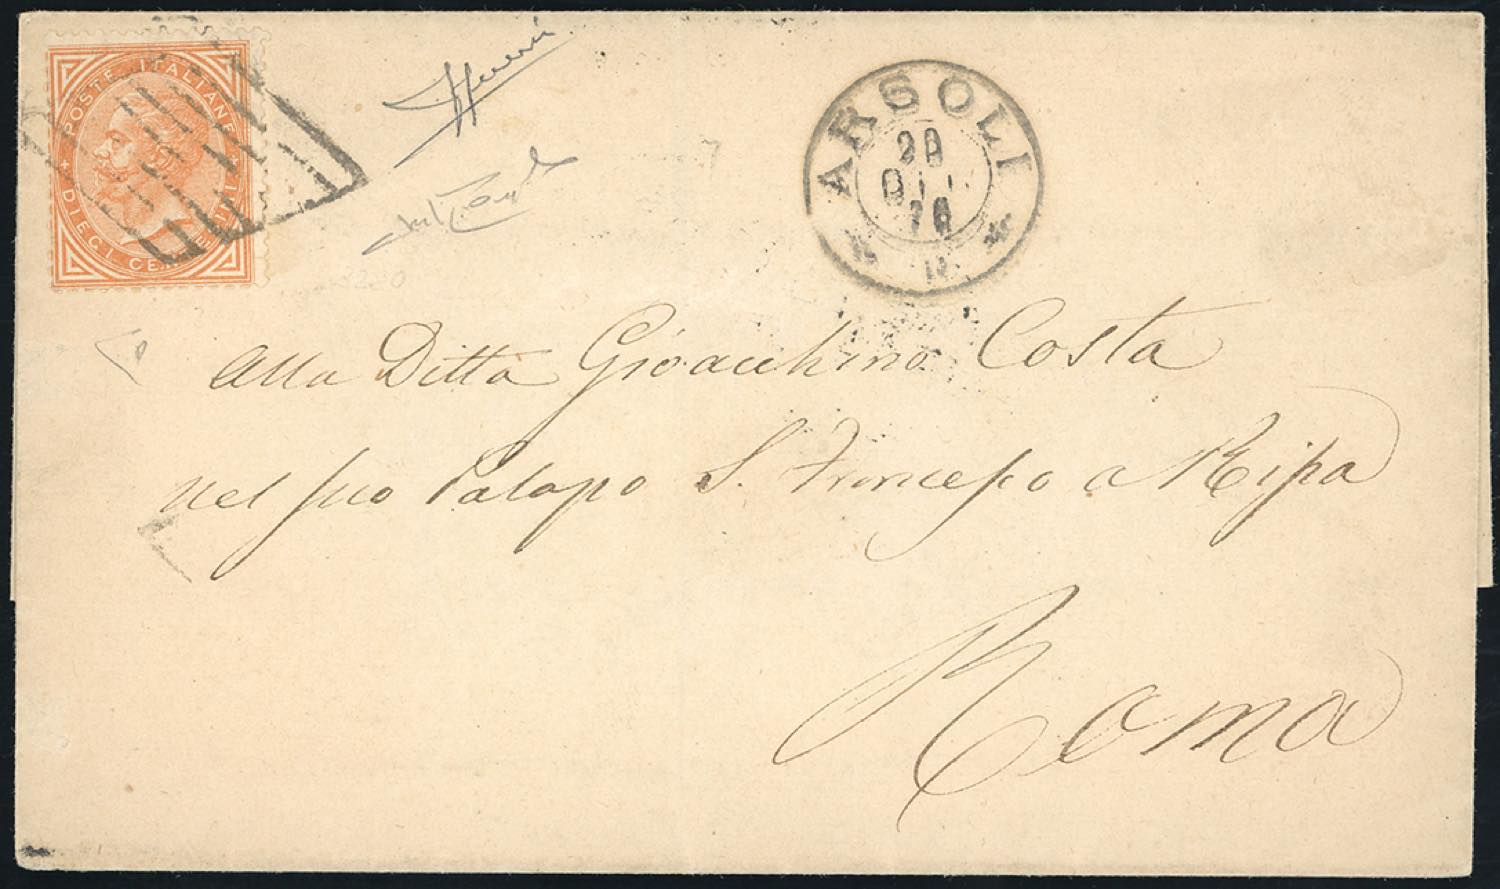 POSTE ITALIANE
DIECI CENTESIMI
ARSOLI
Alla Ditta Gioacchino Costa
nel suo Palazzo S. Francesco a Ripa
Roma